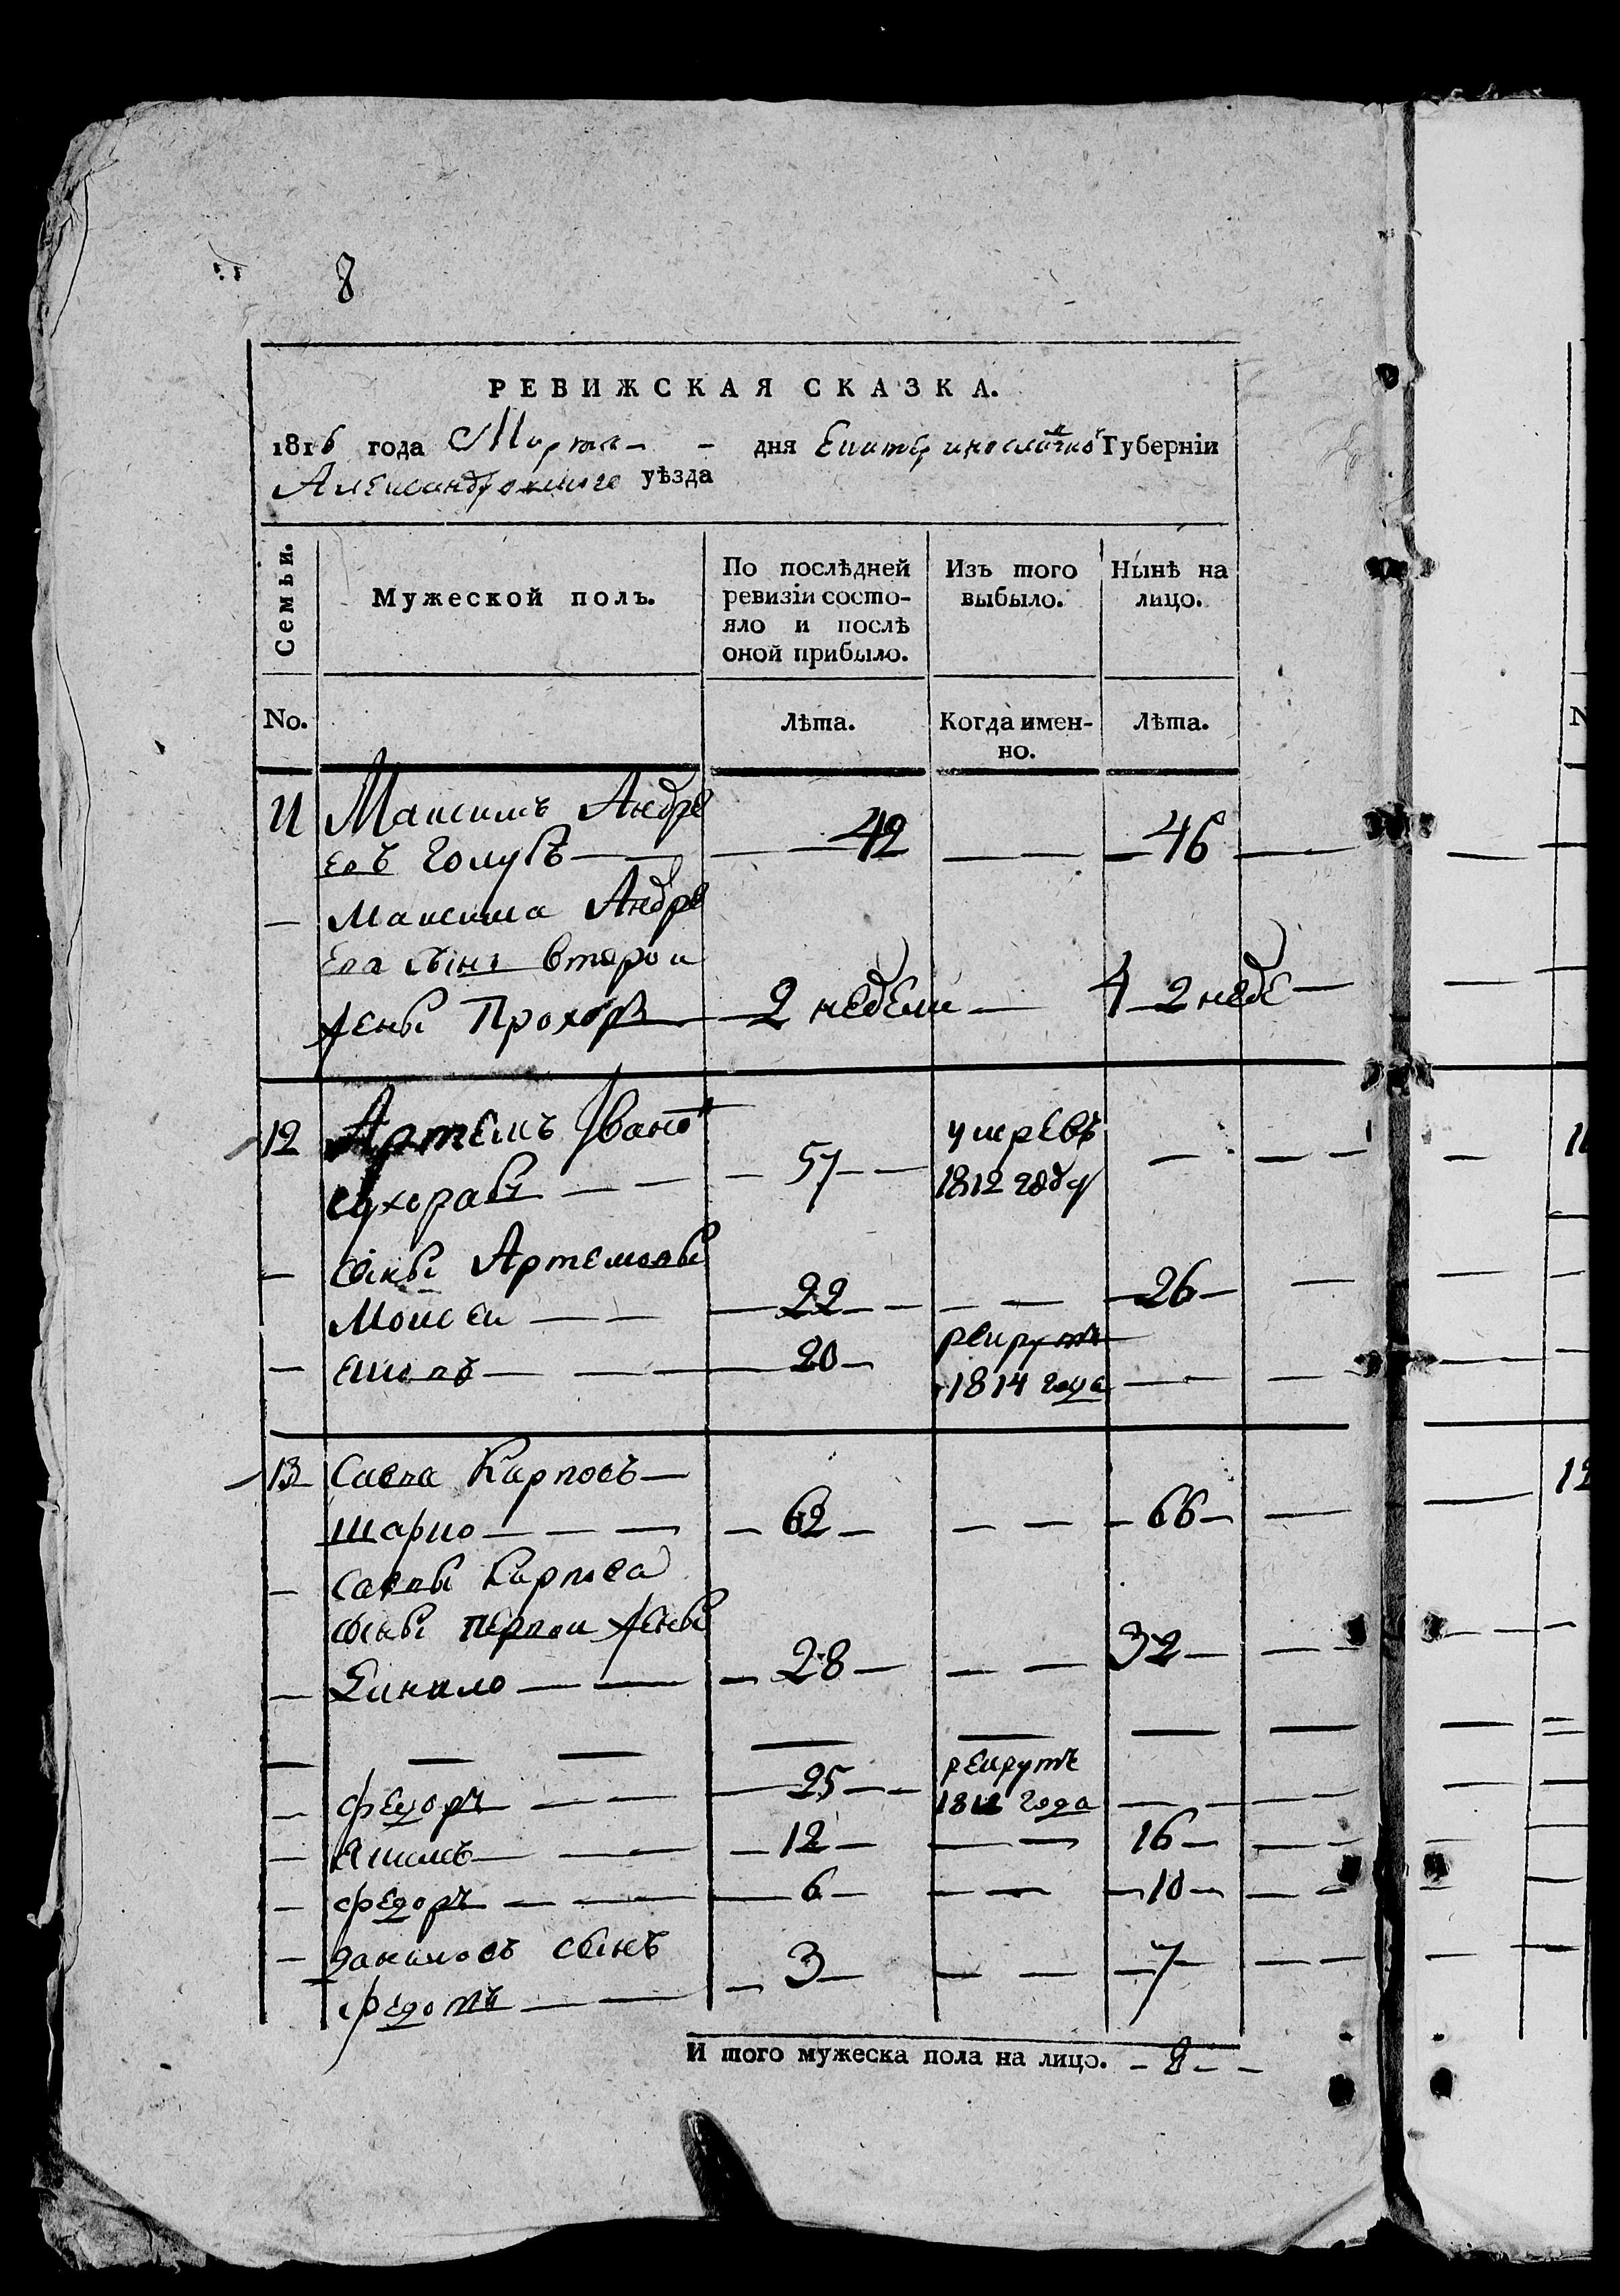 8
РЕВИЖСКАЯ СКАЗКА.
1816 года Марта дня Екатеринославской Губерніи
Александровского уѣзда
Семьи.
Мужеской полъ.
По послѣдней ревизіи состо-
яло и послѣ
оной прибыло.
Изъ того
выбыло.
Нынѣ на
лицо.
No.
Лѣта.
Когда имен-
но.
Лѣта.
11 Максимъ Андре
евъ Голубъ 42 46
Максима Андре
ева сынъ второи
жены Прохоръ 2 недели 4 2 неде
12 Артемъ Ивановъ 57 умревъ
1812 году
сынвы Артемовы
Моисеи 22 26
20 рекрутъ
1814 года
13 Савва Карповъ
шарко 62 66
Саввы Карпова
сынвы первои жены
Данило 28 32
федоръ 25 рекрутъ
1812 года
Якимъ 12 16
федоръ 6 10
даниловъ сынъ
федотъ 3 7
И того мужеска пола на лицо. 8